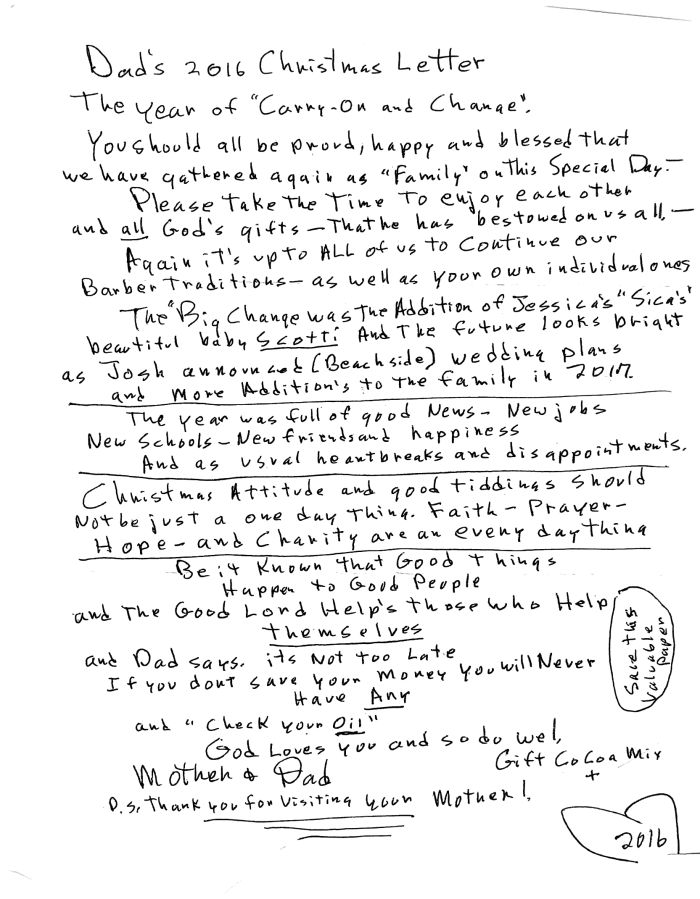 Dad's 2016 Christmas Letter
The Year of "Carry-On and Change".
You should all be proud, happy and blessed that
we have gathered again as "Family" on This Special Day.—
Please take the Time To enjoy each other
and all God's gifts — That he has bestowed on us all, —
Again it's up to ALL of us to Continue our
Barber Traditions — as well as your own individual ones
The "Big Change was The Addition of Jessica's "Sica's"
beautiful baby Scotti And The future looks bright
as Josh announced (Beachside) wedding plans
and More Addition's to the family in 2017.
The year was full of good News - New jobs
New Schools - New friends and happiness
And as usual heartbreaks and disappointments.
Christmas Attitude and good tiddings should
Not be just a one day Thing. Faith - Prayer -
Hope - and Charity are an every day thing
Be it Known that Good things
Happen to Good People
and The Good Lord Help's those who Help
Themselves
and Dad says. its Not Too Late
If you dont save your Money you will Never
Have Any
and "Check your Oil"
God Loves you and so do we!,
Mother & Dad
P.S. Thank you for Visiting your Mother!,
Save this
Valuable
Paper
Gift CoCoa Mix
+
2016